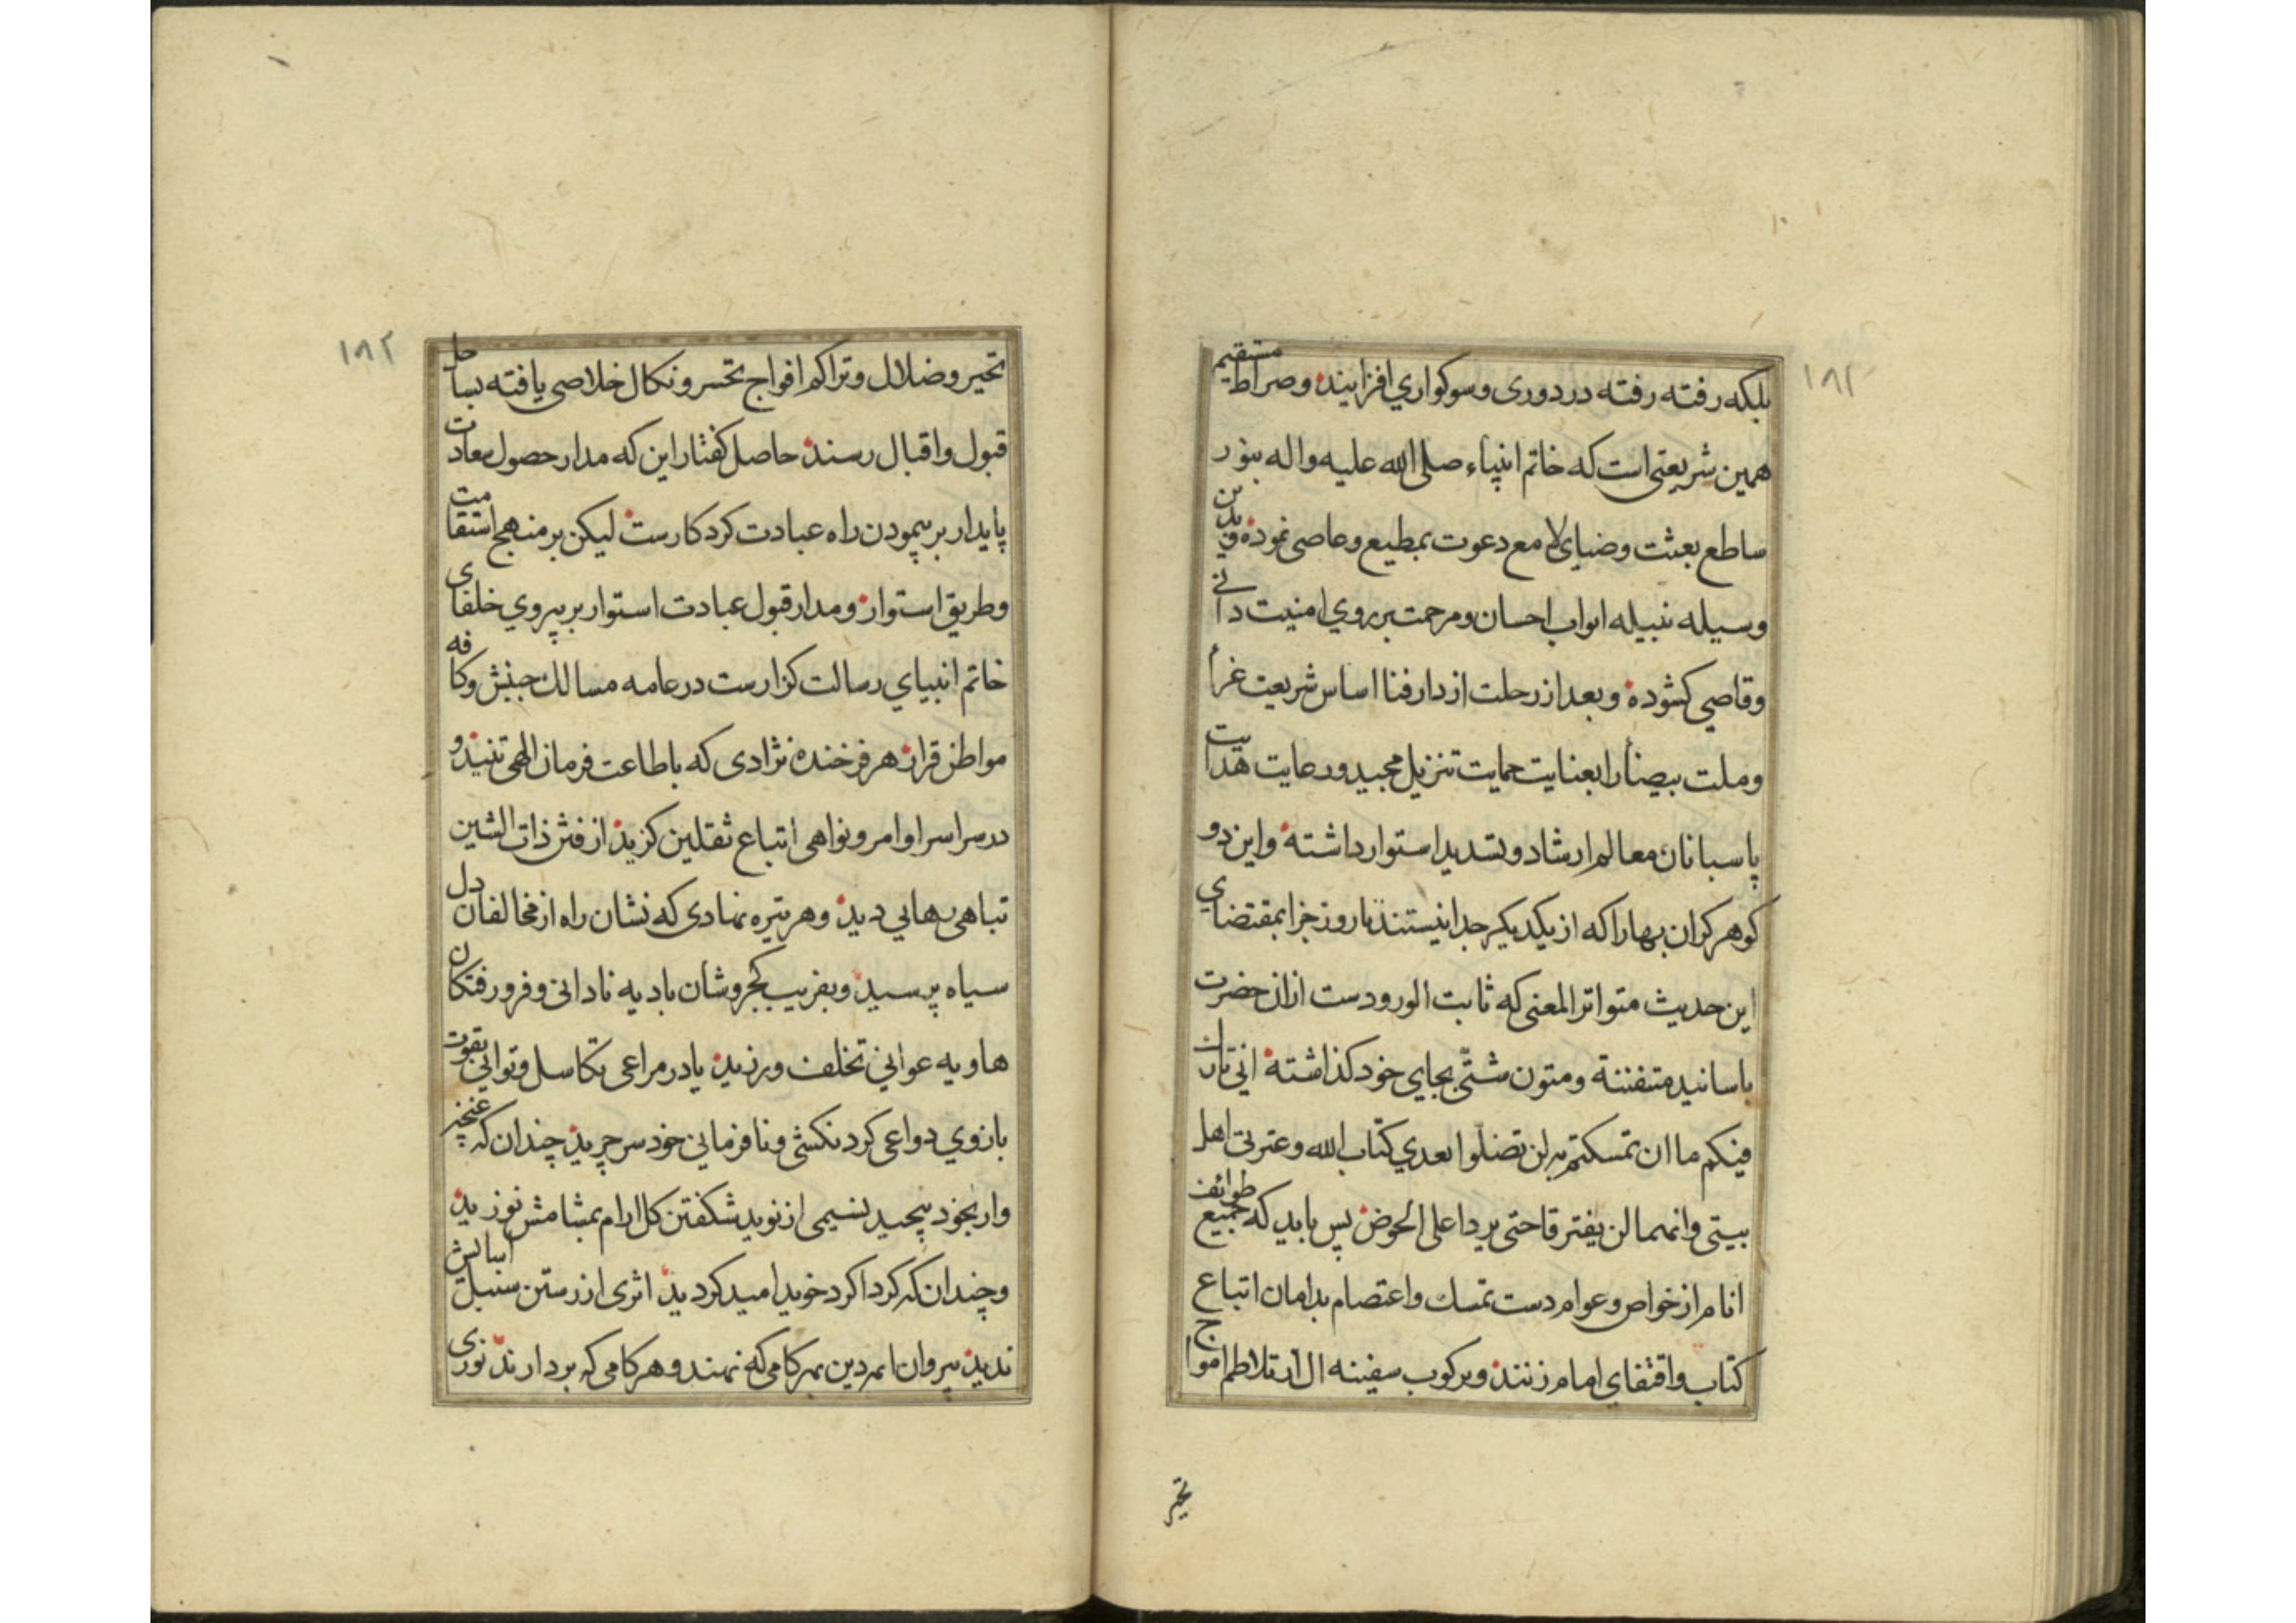 ۱۸۲
بلکه رفته رفته در دوری و سوکواری افزایند و صراط مستقیم
همین شریعتی است که خاتم انبیاء صلی الله علیه واله بنور
ساطع بعثت وضیای لامع دعوت بمطیع وعاصی نموده و بدین
وسیله نبیله ابواب احسان ومرحمت بر روی امنیت دانی
وقاصی کشوده وبعد از رحلت از دار فنا اساس شریعت غرا
وملت بیضا را بعنایت حمایت تنزیل مجید ورعایت هدایت
پاسبانان معالم ارشاد وتسدید استوار داشته واین دو
کوهر کران بها را که از یکدیکر جدا نیستند تا روز جزا بمقتضای
این حدیث متواتر المعنی که ثابت الورودست ازان حضرت
باسانید متفننة ومتون شتّی بجای خود کذاشته انی تارک
فیکم ما ان تمسکتم به لن تضلوا بعدی کتاب الله وعترتی اهل
بیتی وانهما لن یفترقا حتی یردا علی الحوض پس باید که جمیع طوائف
انام از خواص وعوام دست تمسک واعتصام بدامان اتباع
کتاب واقتفای امام زنند وبرکوب سفینه ال از تلاطم امواج
تحیر
۱۸۳
تحیر وضلال وتراکم افواج تحسر ونکال خلاصی یافته بساحل
قبول واقبال رسند حاصل کفتار این که مدار حصول سعادت
پایدار بر پیمودن راه عبادت کردکارست لیکن بر منهج استقامت
وطریق استوار ومدار قبول عبادت استوار بر پیروی خلفای
خاتم انبیای رسالت کزارست در عامه مسالک جنبش وکافه
مواطن قرار هر فرخنده نژادی که باطاعت فرمان الهی تنید و
در سراسر اوامر ونواهی اتباع ثقلین کزید از فتن ذات الشین
تباهی رهایی دید وهر تیره نهادی که نشان راه از مخالفان دل
سیاه پرسید وبفریب کجروشان بادیه نادانی وفرورفتکان
هاویه عوانی تخلف ورزید یا در مراعی تکاسل وتوانی بقوت
بازوی دواعی کردنکشی ونافرمانی خود سر چرید چندان که غنچه
وار بخود پیچید نسیمی از نوید شکفتن کل ارام بمشامش نوزید
وچندان که کرداکرد خوید امید کردید اثری از رستن سنبل اسایش
ندید پیروان ائمه دین بهر کامی که نهند وهر کامی که بردارند نوری